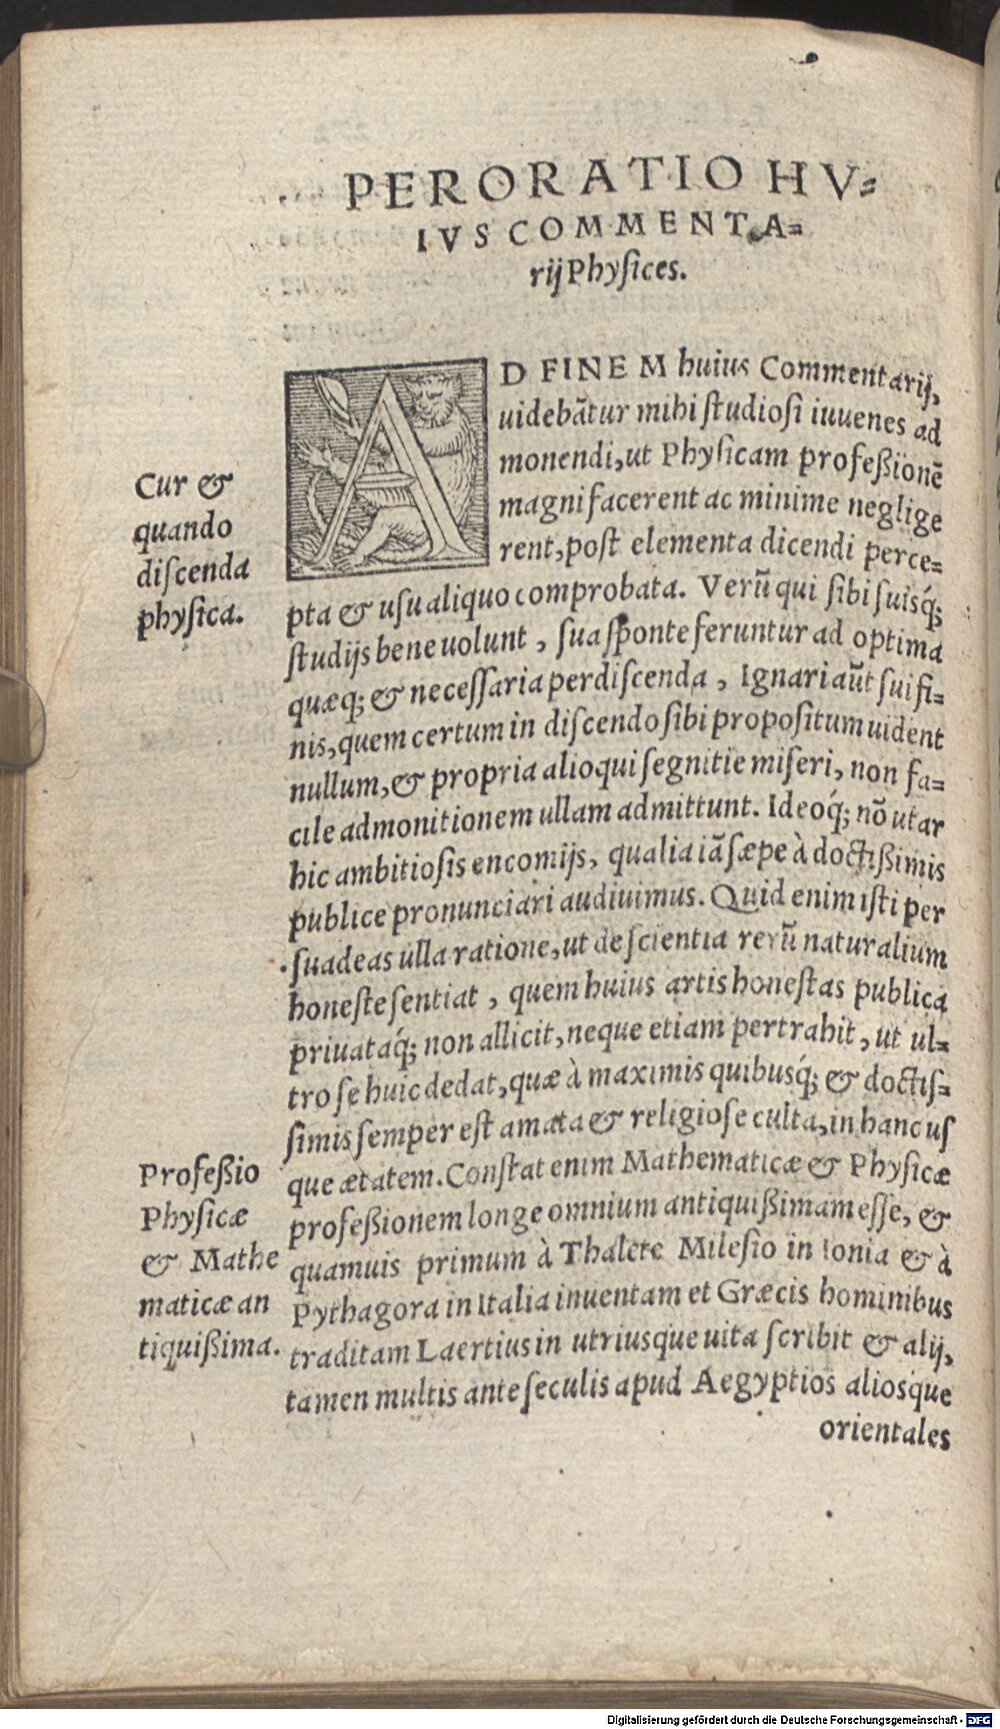 PERORATIO HV=
IVS COMMENTA=
rij Physices.
AD FINEM huius Commentarij,
uidebãtur mihi studiosi iuuenes ad
monendi, ut Physicam profeßionẽ
magni facerent ac minime neglige
rent, post elementa dicendi perce=
pta & usu aliquo comprobata. Verũ qui sibi suisq́;
studijs bene uolunt, sua sponte feruntur ad optima
quæq; & necessaria perdiscenda, Ignari aũt sui fi=
nis, quem certum in discendo sibi propositum uident
nullum, & propria alioqui segnitie miseri, non fa=
cile admonitionem ullam admittunt. Ideoq́; nõ utar
hic ambitiosis encomijs, qualia iã sæpe à doctißimis
publice pronunciari audiuimus. Quid enim isti per
suadeas ulla ratione, ut de scientia rerũ naturalium
honeste sentiat, quem huius artis honestas publica
priuataq́; non allicit, neque etiam pertrahit, ut ul=
tro se huic dedat, quæ à maximis quibusq́; & doctis=
simis semper est amata & religiose culta, in hanc us
que ætatem. Constat enim Mathematicæ & Physicæ
profeßionem longe omnium antiquißimam esse, &
quamuis primum à Thalete Milesio in Ionia & à
Pythagora in Italia inuentam et Græcis hominibus
traditam Laertius in utriusque uita scribit & alij,
tamen multis ante seculis apud Aegyptios aliosque
orientales
Cur &
quando
discenda
physica.
Profeßio
Physicæ
& Mathe
maticæ an
tiquißima.
Digitalisierung gefördert durch die Deutsche Forschungsgemeinschaft - DFG